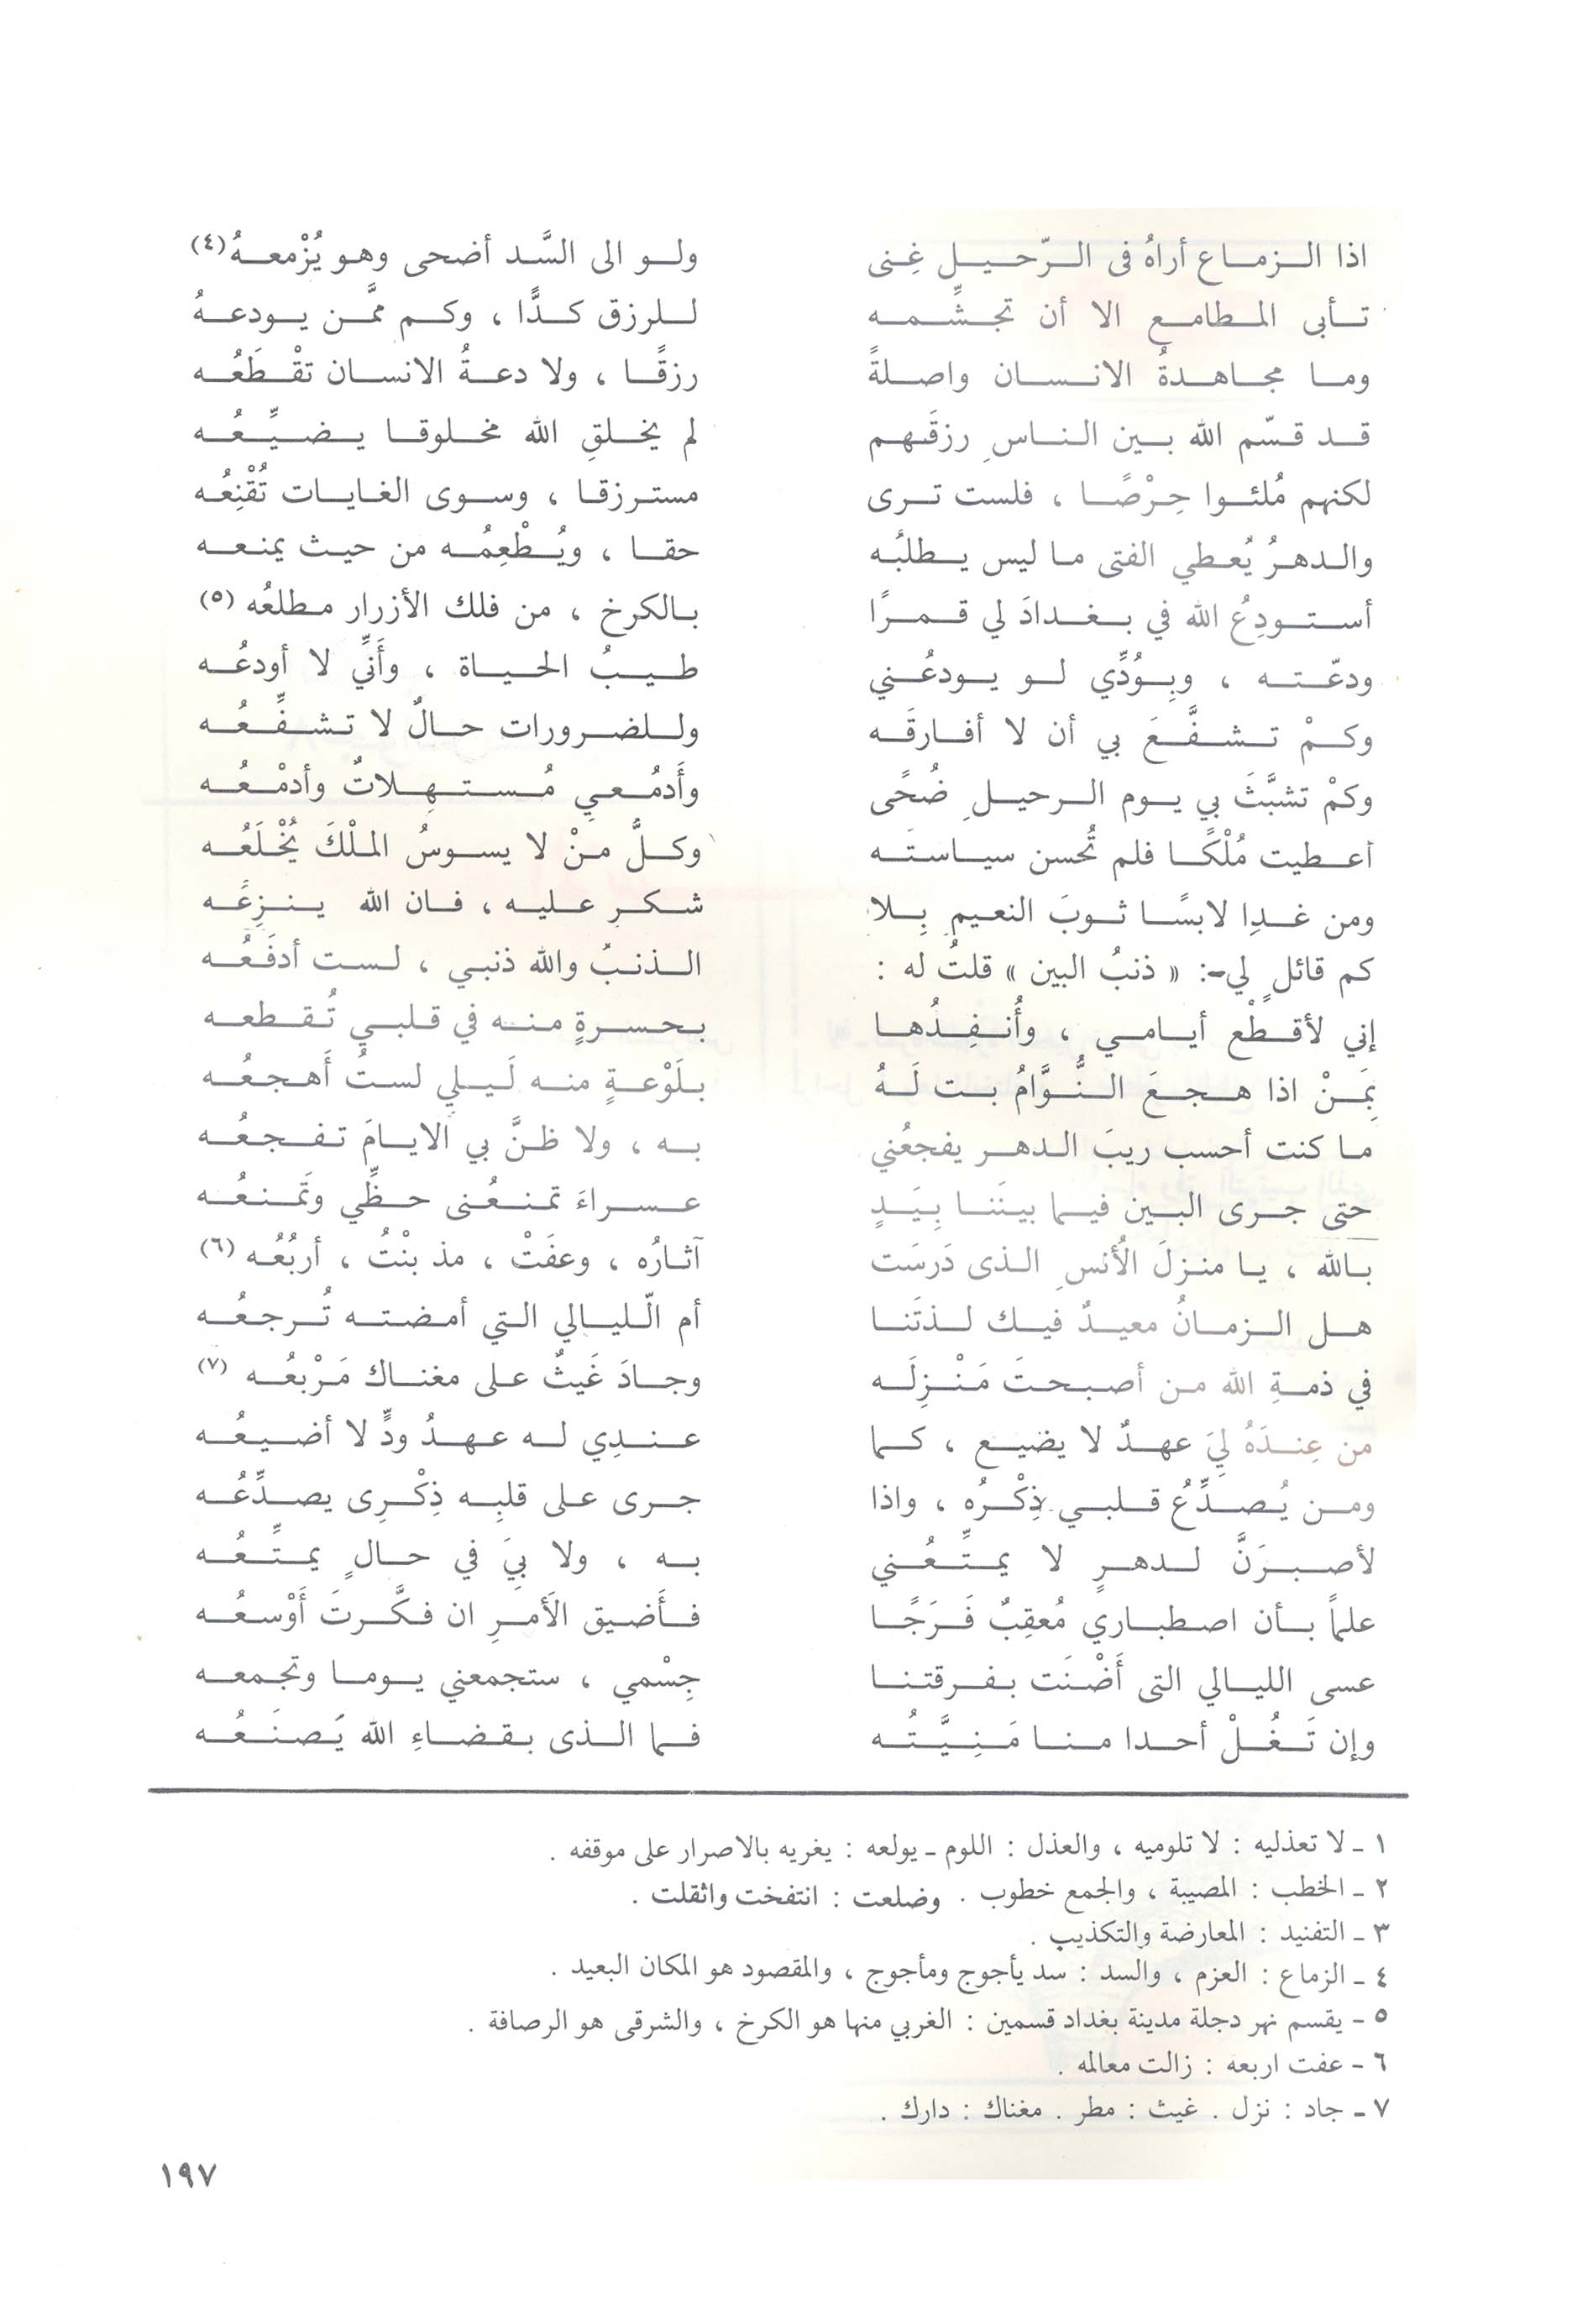 اذا الزماع أراهُ فى الرّحيل غِنى ولو الى السَّد أضحى وهو يُزْمعهُ (٤)
تأبى المطامع الا أن تجشِّمه للرزق كدًّا ، وكم ممَّن يودعهُ
وما مجاهدةُ الانسان واصلةً رزقًا ، ولا دعةُ الانسان تقْطَعُه
قد قسّم الله بين الناسِ رزقَهم لم يخلقِ الله مخلوقا يضيِّعُه
لكنهم مُلئوا حِرْصًا ، فلست ترى مسترزقا ، وسوى الغايات تُقْنِعُه
والدهرُ يُعطي الفتى ما ليس يطلبُه حقا ، ويُطْعِمُه من حيث يمنعه
أستودِعُ الله في بغدادَ لي قمرًا بالكرخ ، من فلك الأزرار مطلعُه (٥)
ودعّته ، وبِوُدِّي لو يودعُني طيبُ الحياة ، وأَنِّي لا أودعُه
وكمْ تشفَّعَ بي أن لا أفارقَه وللضرورات حالٌ لا تشفِّعُه
وكمْ تشبَّثَ بي يوم الرحيلِ ضُحًى وأَدمُعي مُستهِلاتٌ وأدمْعُه
أعطيت مُلْكًا فلم تُحسن سياستَه وكلُّ منْ لا يسوسُ الملْكَ يُخْلَعُه
ومن غدا لابسًا ثوبَ النعيم بِلا شكرٍ عليه ، فان الله ينزِعُه
كم قائلٍ لي :- « ذنبُ البين » قلتُ له : الذنبُ والله ذنبي ، لست أدفَعُه
إني لأقطْع أيامي ، وأُنفِدُها بحسرةٍ منه في قلبي تُقطعه
بَمَنْ اذا هجعَ النُّوَّامُ بت لَهُ بلَوْعةٍ منه لَيلي لستُ أَهجعُه
ما كنت أحسب ريبَ الدهر يفجعُني به ، ولا ظنَّ بي الايامَ تفجعُه
حتى جرى البين فيما بينَنا بِيَدٍ عسراءَ تمنعُنى حظِّي وتَمنعُه
بالله ، يا منزلَ الأُنسِ الذى دَرسَت آثارُه ، وعفَتْ ، مذ بنْتُ ، أربُعُه (٦)
هل الزمانُ معيدٌ فيك لذتَنا أم الّليالي التي أمضته تُرجعُه
في ذمةِ الله من أصبحتَ مَنْزِلَه وجادَ غَيثٌ على مغناك مَرْبعُه (٧)
من عِندَهُ لِيَ عهدٌ لا يضيع ، كما عندِي له عهدُ ودٍّ لا أضيعُه
ومن يُصدِّعُ قلبي ذِكْرُه ، واذا جرى على قلبِه ذِكْرِى يصدِّعُه
لأصبرَنَّ لدهرٍ لا يمتِّعُني به ، ولا بِيَ في حالٍ يمتِّعُه
علماً بأن اصطباري مُعقِبٌ فَرَجًا فأَضيق الأَمرِ ان فكَّرتَ أَوْسعُه
عسى الليالي التى أَضْنَت بفرقتنا جِسْمي ، ستجمعني يوما وتجمعه
وإن تَغُلْ أحدا منا مَنِيَّتُه فما الذى بقضاءِ الله يَصنَعُه
١ - لا تعذليه : لا تلوميه ، والعذل : اللوم - يولعه : يغريه بالاصرار على موقفه .
٢ - الخطب : المصيبة ، والجمع خطوب . وضلعت : انتفخت واثقلت .
٣ - التفنيد : المعارضة والتكذيب .
٤ - الزماع : العزم ، والسد : سد يأجوج ومأجوج ، والمقصود هو المكان البعيد .
٥ - يقسم نهر دجلة مدينة بغداد قسمين : الغربي منها هو الكرخ ، والشرقى هو الرصافة .
٦ - عفت اربعه : زالت معالمه .
٧ - جاد : نزل . غيث : مطر . مغناك : دارك .
١٩٧